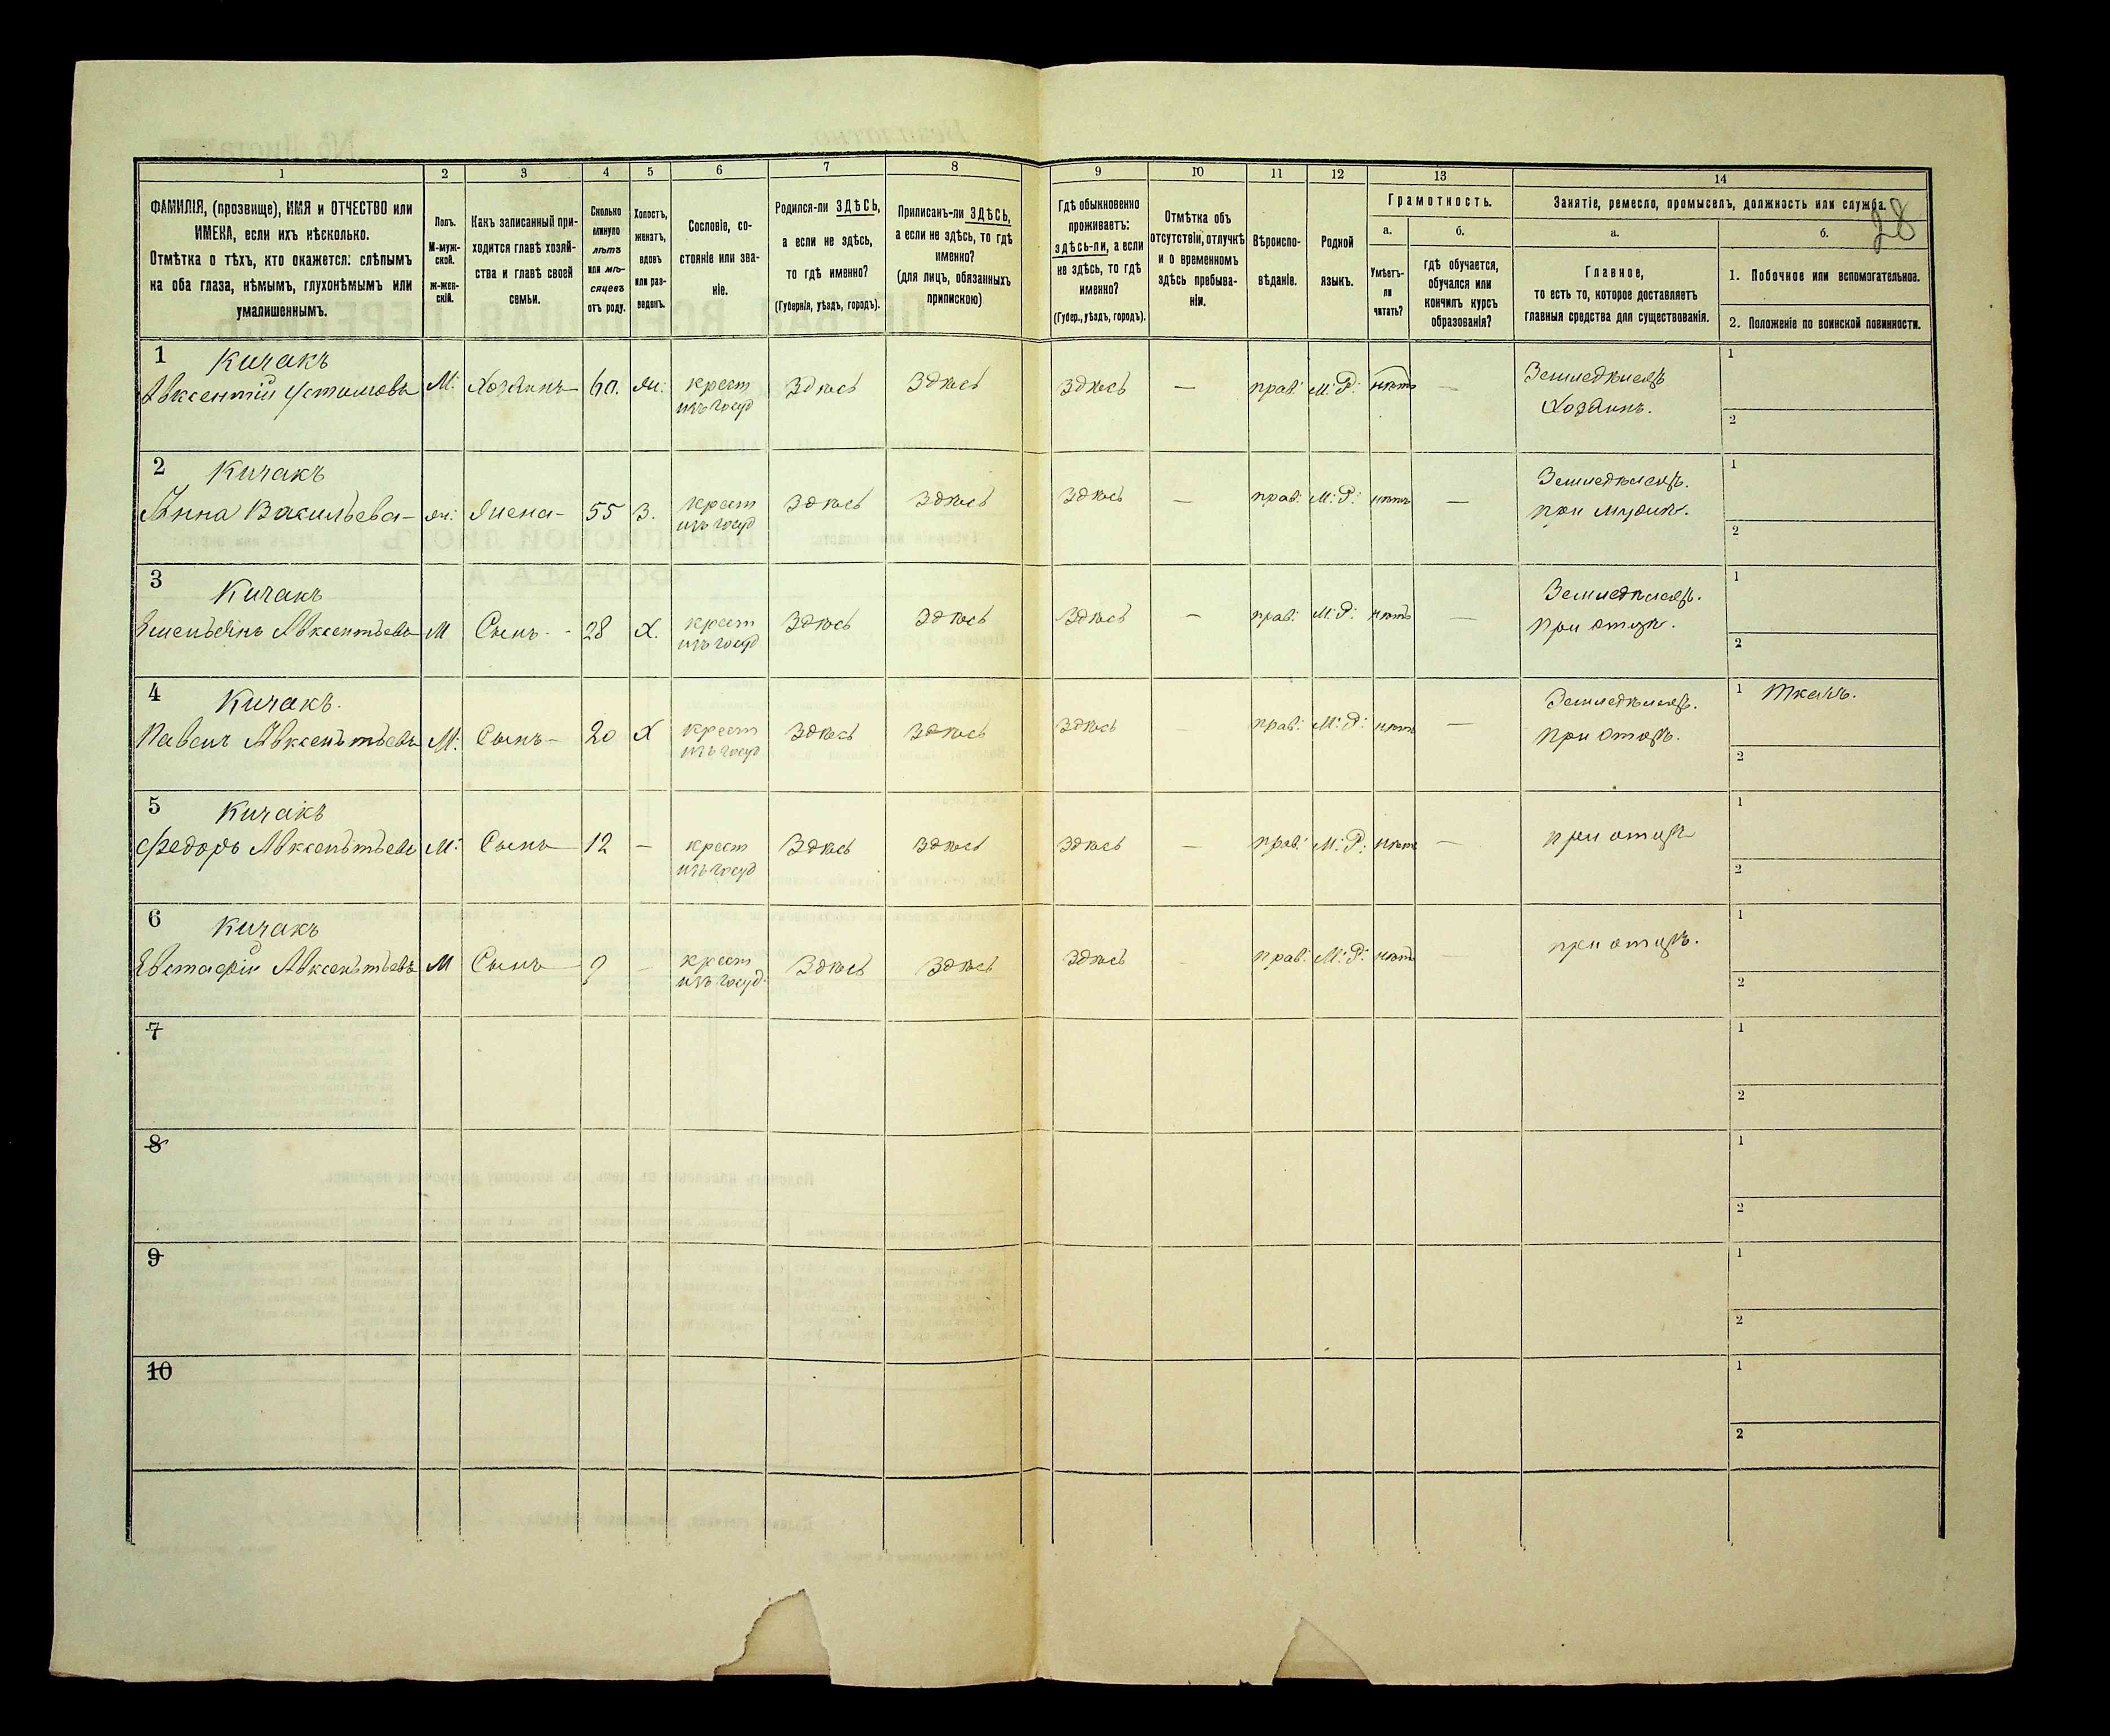 28
1 2 3 4 5 6 7 8 9 10 11 12 13 14
ФАМИЛІЯ, (прозвище), ИМЯ и ОТЧЕСТВО или
ИМЕНА, если ихъ нѣсколько.
Отмѣтка о тѣхъ, кто окажется: слѣпымъ
на оба глаза, нѣмымъ, глухонѣмымъ или
умалишеннымъ.
Полъ.
М-муж-
ской.
ж-жен-
скій.
Какъ записанный при-
ходится главѣ хозяй-
ства и главѣ своей
семьи.
Сколько
минуло
лѣтъ
или мѣ-
сяцевъ
отъ роду.
Холостъ,
женатъ,
вдовъ
или раз-
веденъ.
Сословіе, со-
стояніе или зва-
ніе.
Родился-ли ЗДѢСЬ,
а если не здѣсь,
то гдѣ именно?
(Губернія, уѣздъ, городъ).
Приписанъ-ли ЗДѢСЬ,
а если не здѣсь, то гдѣ
именно?
(для лицъ, обязанныхъ
припискою)
Гдѣ обыкновенно
проживаетъ:
здѣсь-ли, а если
не здѣсь, то гдѣ
именно?
(Губер., уѣздъ, городъ).
Отмѣтка объ
отсутствіи, отлучкѣ
и о временномъ
здѣсь пребыва-
ніи.
Вѣроиспо-
вѣданіе.
Родной
языкъ.
Грамотность.
а.
Умѣетъ-
ли
читать?
б.
гдѣ обучается,
обучался или
кончилъ курсъ
образованія?
Занятіе, ремесло, промыселъ, должность или служба.
а.
Главное,
то есть то, которое доставляетъ
главныя средства для существованія.
б.
1. Побочное или вспомогательное.
2. Положеніе по воинской повинности.
1 Кичакъ
Авксентій Устимовъ М. Хозяинъ 60. жн. крест Здѣсь Здѣсь Здѣсь — прав. М. Р. нѣтъ — Земледѣлецъ 1
изъ госуд Хозяинъ. 2
2 Кичакъ
Анна Васильева ж. Жена 55 З. крест Здѣсь Здѣсь Здѣсь — прав. М. Р. нѣтъ — Земледѣлецъ. 1
изъ госуд при мужѣ. 2
3 Кичакъ
Емельянъ Авксентьевъ М Сынъ 28 Х. крест Здѣсь Здѣсь Здѣсь — прав. М. Р. нѣтъ — Земледѣлецъ. 1
изъ госуд при отцѣ. 2
4 Кичакъ.
Павелъ Авксентьевъ М. Сынъ 20 Х крест Здѣсь Здѣсь Здѣсь — прав. М. Р. нѣтъ — Земледѣлецъ. 1 Ткачъ.
изъ госуд при отцѣ. 2
5 Кичакъ
Федоръ Авксентьевъ М. Сынъ 12 — крест Здѣсь Здѣсь Здѣсь — прав. М. Р. нѣтъ — при отцѣ 1
изъ госуд 2
6 Кичакъ
Евстафій Авксентьевъ М Сынъ 9 — крест Здѣсь Здѣсь Здѣсь — прав. М. Р. нѣтъ — при отцѣ. 1
изъ госуд 2
7 1
2
8 1
2
9 1
2
10 1
2